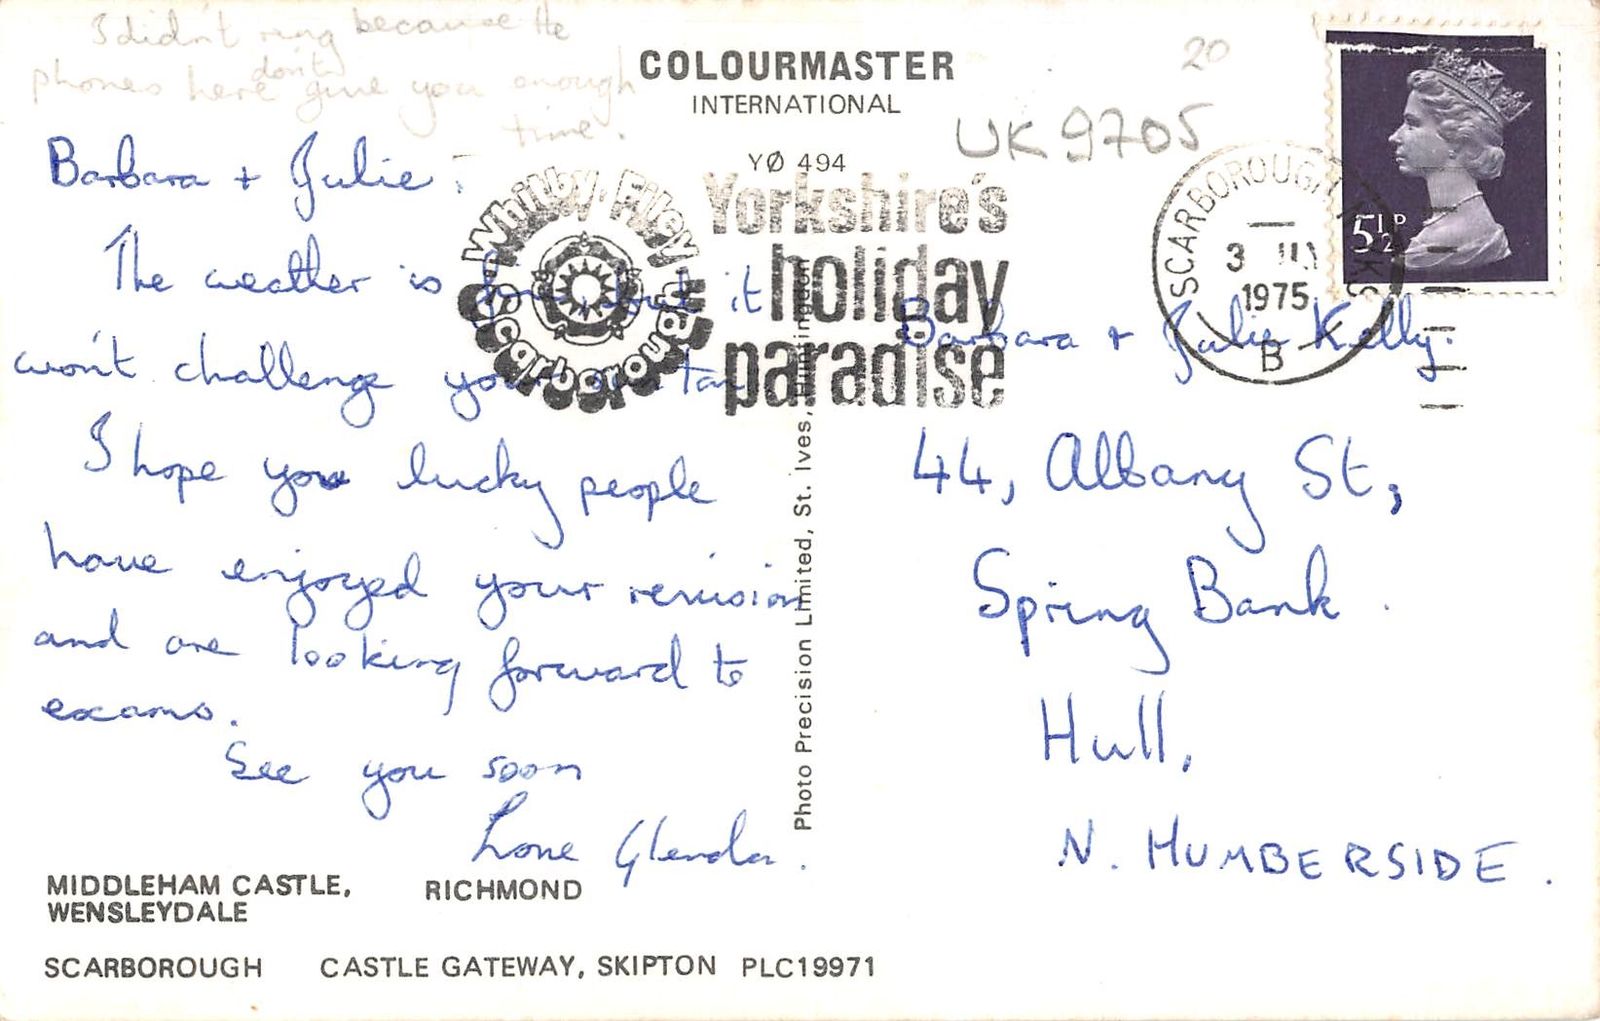 I didn't ring because the
phones here don't give you enough
time.
COLOURMASTER
INTERNATIONAL
YØ 494
20
UK 9705
Whitby Filey
Scarborough
Yorkshire's
holiday
paradise
SCARBOROUGH YORKS
3 JU
1975
B
5½P
Barbara + Julie,
The weather is but it
won't challenge your tan
I hope you lucky people
have enjoyed your revision
and are looking forward to
exams.
See you soon
Love Glenda.
Photo Precision Limited, St. Ives, Huntingdon
Barbara + Julie Kelly.
44, Albany St,
Spring Bank.
Hull,
N. HUMBERSIDE.
MIDDLEHAM CASTLE, RICHMOND
WENSLEYDALE
SCARBOROUGH CASTLE GATEWAY, SKIPTON PLC19971